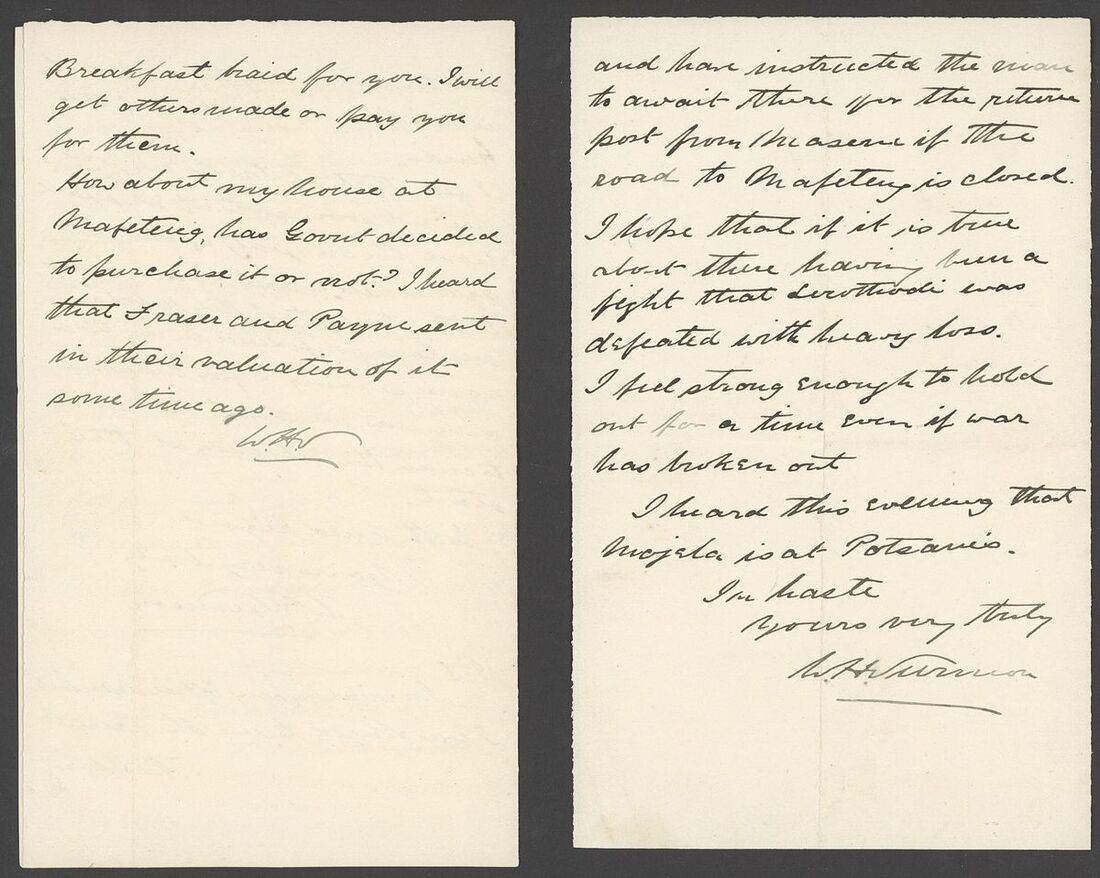 Breakfast braid for you. I will
get others made or pay you
for them.
How about my house at
Mafeteng, has Govnt decided
to purchase it or not? I heard
that Fraser and Payne sent
in their valuation of it
some time ago.
and have instructed the man
to await there for the return
post from Maseru if the
road to Mafeteng is closed.
I hope that if it is true
about there having been a
fight that Lerothodi was
defeated with heavy loss.
I feel strong enough to hold
out for a time even if war
has broken out
I heard this evening that
Mojela is at Potsane's.
In haste
Yours very truly